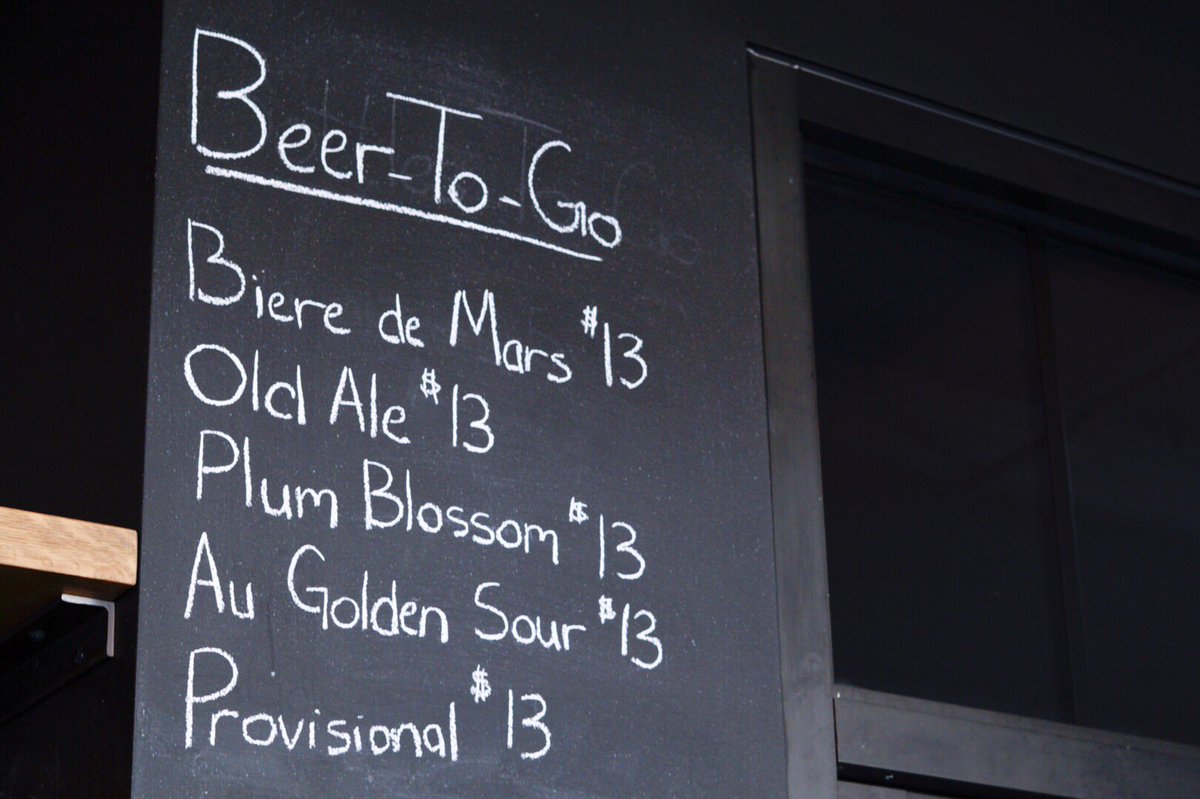 Beer-To-Go
Biere de Mars $13
Old Ale $13
Plum Blossom $13
Au Golden Sour $13
Provisional $13